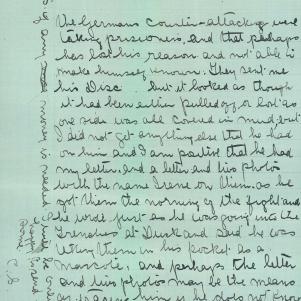 the Germans counter-attacking were
taking prisoners, and that perhaps
he has lost his reason and not able to
make himself known. They sent me
his Disc but it looked as though
it had been either pulled off or lost as
one side was all covered in mud, but
I did not get anything else that he had
on him and I am positive that he had
my letter, and a letter and his photos
with the name Irene on them, as he
got them the morning of the fight and
he wrote just as he was going into the
trenches at Dusk and said he was
taking them in his pocket as a
mascote, and perhaps the letter
and this photo may be the means
of tracing him if he does not know
So if any money is needed I will be only